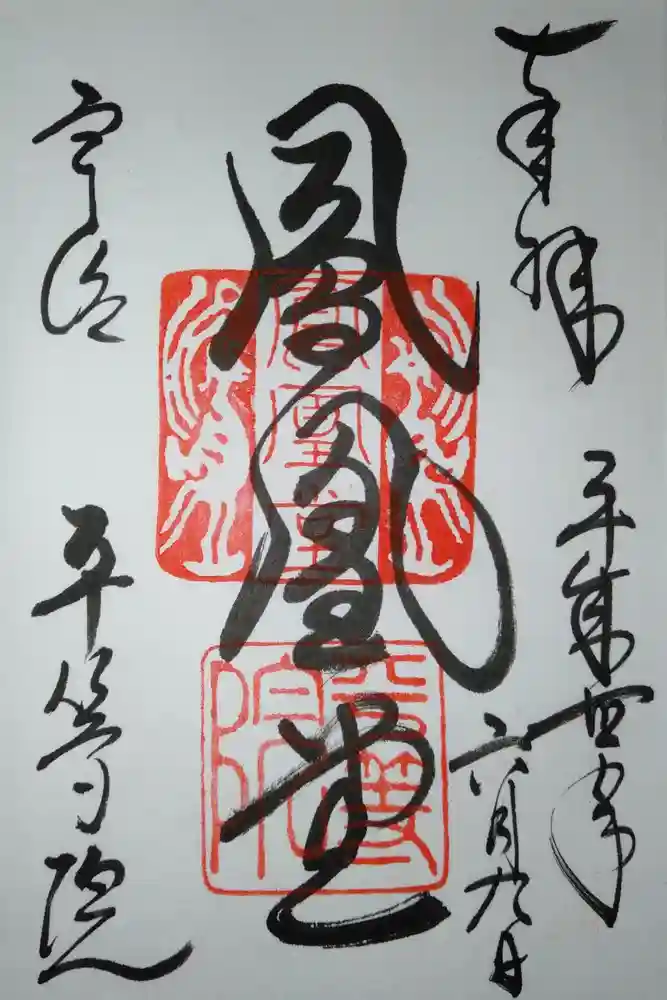 奉拝
平成四年
六月九日
鳳凰堂
鳳凰堂
平等院
宇治
平等院